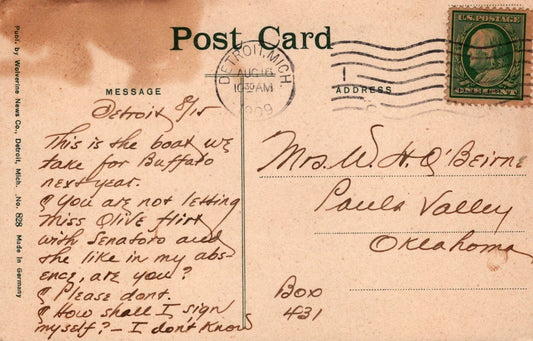 Post Card
U.S. POSTAGE
ONE CENT
DETROIT, MICH.
AUG 16
10:30 AM
1909
1
MESSAGE
ADDRESS
Detroit 8/15
This is the boat we
take for Buffalo
next year.
¶ You are not letting
Miss Olive flirt
with Senators and
the like in my abs-
ence, are you?
¶ Please dont.
¶ How shall I sign
myself? – I don't know
Mrs. W. H. O'Beirne
Pauls Valley
Oklahoma
Box
431
Publ. by Wolverine News Co., Detroit, Mich. No. 828 Made in Germany